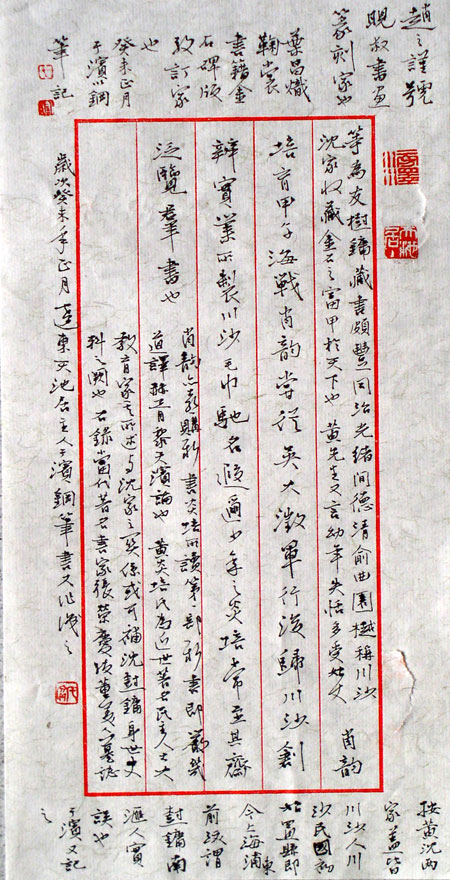 趙之謙號
書畫
篆刻家也
葉昌熾
鞠裳
書籍金
石碑版
攷訂家
也
癸未正月
于濱以鋼
筆記
等為友樹鏞藏書頗豐同治光緒間德清俞曲園樾稱川沙
沈家收藏金石之富甲於天下也黃先生又言幼年失怙多受姑丈 肖韵
培育甲午海戰肖韵嘗從吳大澂軍行後歸川沙創
辦實業所製川沙毛巾馳名遐邇少年之炎培常至其齋
泛覽羣書也
肖韵亦喜購新書炎培所讀第一部新書即嚴幾
道譯赫胥黎天演論也 黃炎培氏為近世著名民主人士大
教育家其所述与沈家之関係或可補沈封鏞身世文
料之闕也右錄當代著名書家張榮慶跋董美人墓誌
歲次癸未年正月遼東天池居主人于濱鋼筆書又作識之
按黃沈兩
家蓋皆
川沙人川
沙民國初
始置縣即
今上海浦東
前跋謂
封鏞南
匯人實
誤也
于濱又記
之